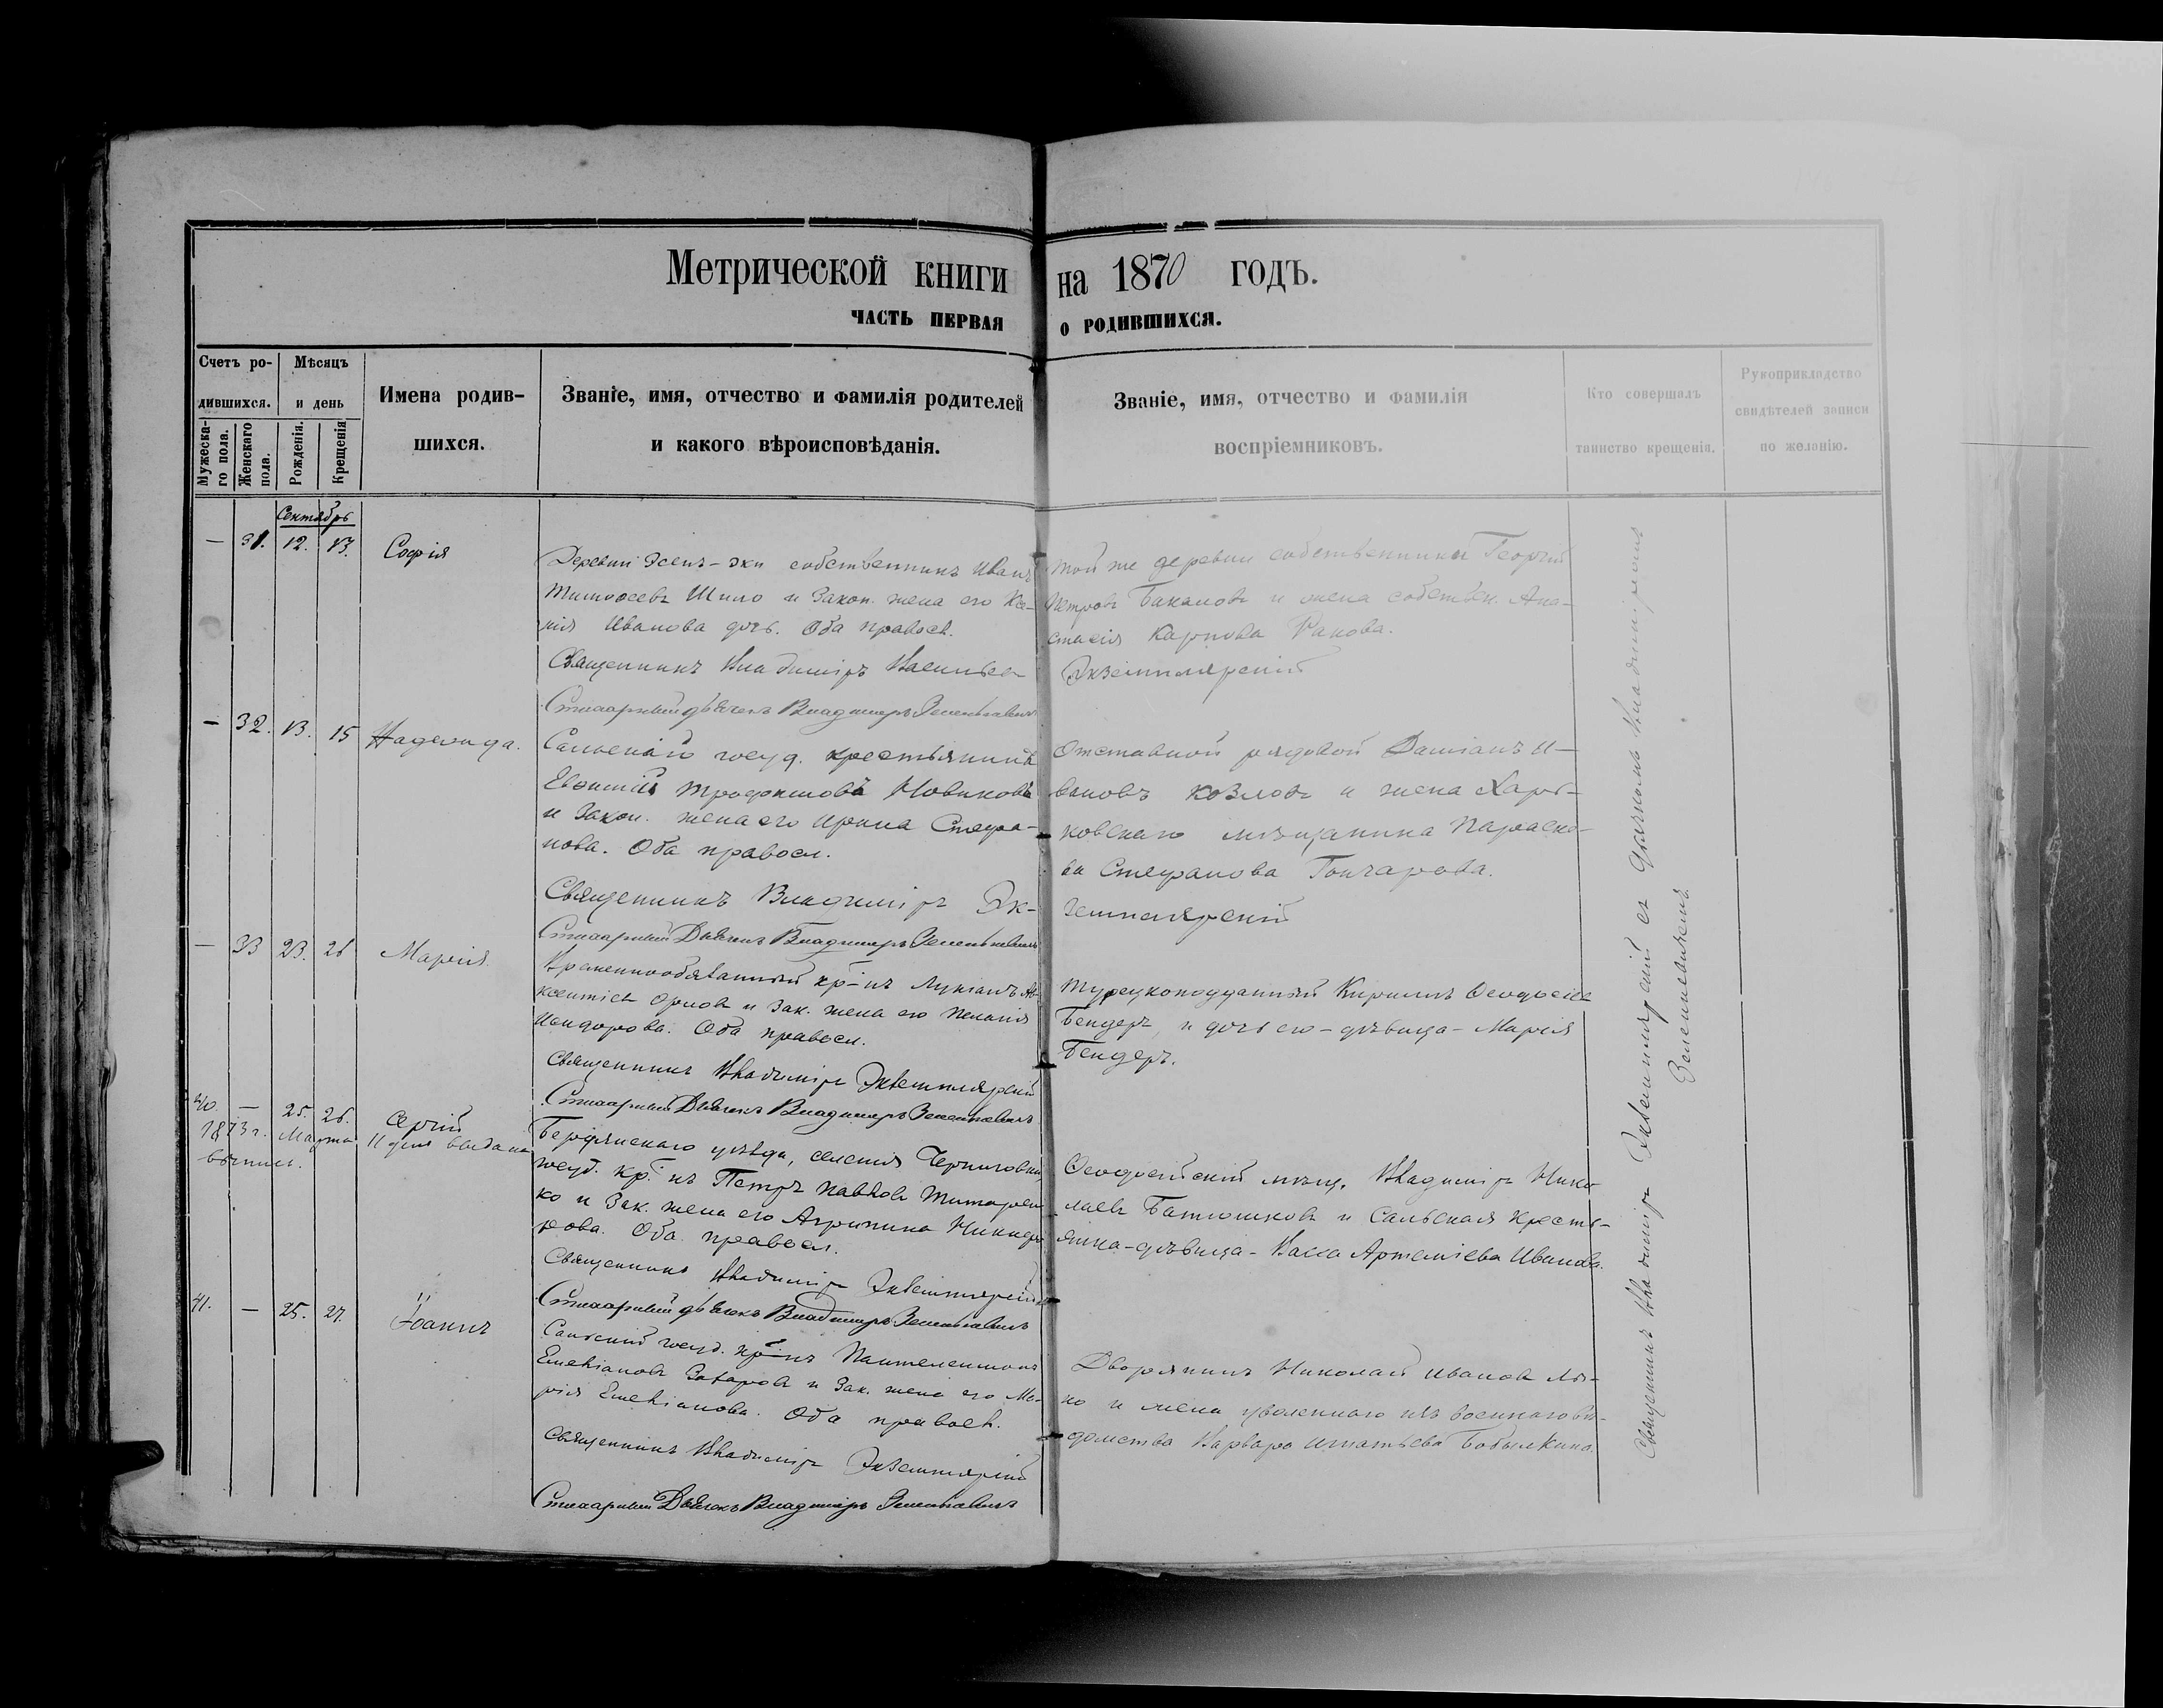 Метрической книги на 1870 годъ.
ЧАСТЬ ПЕРВАЯ О РОДИВШИХСЯ.
Счетъ ро-
дившихся.
Мѣсяцъ
и день
Мужеска-
го пола.
Женскаго
пола.
Рожденія.
Крещенія
Имена родив-
шихся.
Званіе, имя, отчество и фамилія родителей
и какого вѣроисповѣданія.
Званіе, имя, отчество и фамилія
воспріемниковъ.
Кто совершалъ
таинство крещенія.
Рукоприкладство
свидѣтелей записи
по желанію.
Сентябрь
— 31. 12. 13. Софія
Деревни Эсенъ-эки собственникъ Иванъ
Тимофеевъ Шило и Закон. жена его Ксе-
нія Иванова дочь. Оба правосл.
Священникъ Владиміръ Васильев
Стихарный дьячекъ Владимеръ Зеленкевичъ
той же деревни собственникъ Георгій
Петровъ Бакаловъ и жена собствен. Ана-
стасія Карпова Ракова.
Экземплярскій
— 32. 13. 15 Надежда.
Сальскаго госуд. крестьянинъ
Евфимій Трофимовъ Новиковъ
и Закон. жена его Ирина Стефа-
нова. Оба правосл.
Священникъ Владиміръ Эк-
Стихарный Дьячекъ Владимеръ Зеленкевичъ
Отставной рядовой Даміанъ И-
вановъ Козловъ и жена Харь-
ковскаго мѣщанина Параске-
ва Стефанова Гончарова.
земплярскій
— 33 23. 26 Марія.
Временнообязанный кр-нъ Лукіанъ Ав-
ксентіев Орловъ и Зак. жена его Пелагія
Исидорова. Оба правосл.
Священникъ Владиміръ Экземплярскій
Стихарный Дьячекъ Владимеръ Зеленкевичъ
Турецкоподданный Кириллъ Феодосіев
Бендеръ, и дочь его-дѣвица-Марія
Бендеръ.
40. — 25. 26. Сергій
1873 г. Марта 11 дня выдана
выпись.
Бердянскаго уѣзда, селенія Черниговки,
госуд. кр-нъ Петръ Павловъ Титарен-
ко и Зак. жена его Агрипина Никифо-
рова. Оба правосл.
Священникъ Владиміръ Экземплярскій
Стихарный дьячекъ Владимеръ Зеленкевичъ
Феодосійскій мѣщ. Владиміръ Нико-
лаевъ Батюшковъ и Сальская кресть-
янка-дѣвица-Васса Артеміева Иванова.
41. — 25. 27. Іоаннъ
Сальскій госуд. кр-нъ Пантелеимонъ
Емеліановъ Захаровъ и Зак. жена его Ма-
рія Емеліанова. Оба правосл.
Священникъ Владиміръ Экземплярскій
Стихарный Дьячекъ Владимеръ Зеленкевичъ
Дворянинъ Николай Ивановъ
и жена уволеннаго изъ военнаго вѣ-
домства Варвара Игнатьева Бобылкина.
Священникъ Владиміръ Экземплярскій съ дьячкомъ Владиміромъ
Зеленкевичемъ